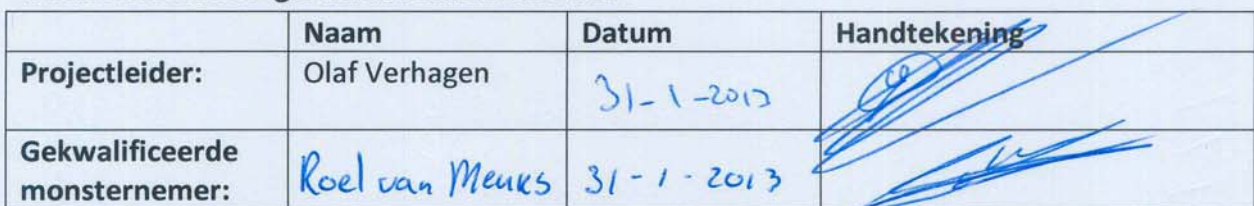 Naam Datum Handtekening
Projectleider: Olaf Verhagen 31-1-2013
Gekwalificeerde
monsternemer: Roel van Meurs 31-1-2013